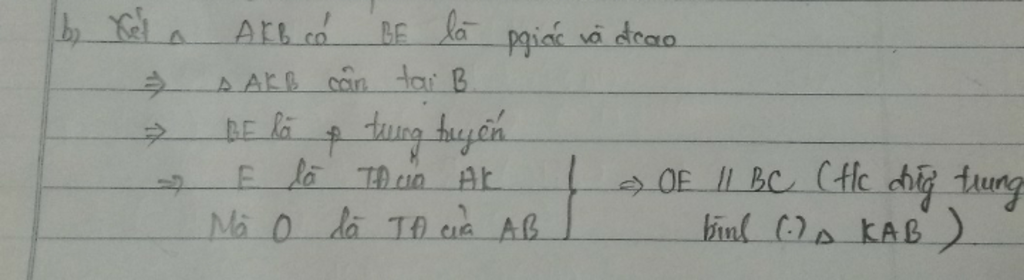 b) Xét △ AKB có BE là pgiác và đcao
⇒ △ AKB cân tại B
⇒ BE là trung tuyến
⇒ E là TĐ của AK } ⇒ OE // BC (t/c đường trung
Mà O là TĐ của AB } bình (.) △ KAB)